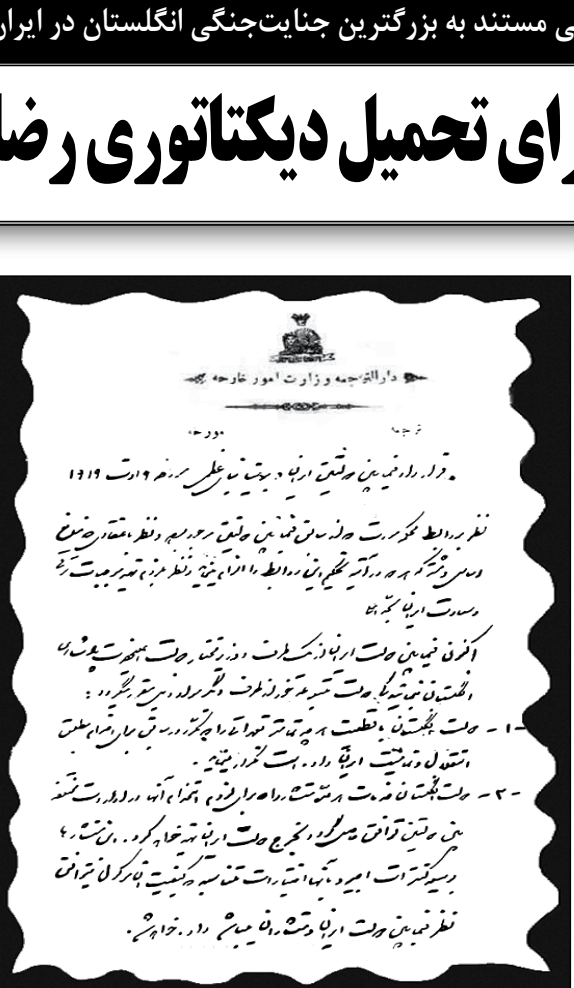 ی مستند به بزرگترین جنایت‌جنگی انگلستان در ایران
رای تحمیل دیکتاتوری رضا
دارالترجمه وزارت امور خارجه
ترجمه مورخه
قرارداد فیمابین دولتین ایران و بریتانیای عظمی مورخه ۹ اوت ۱۹۱۹
نظر بروابط محکم دوستی که از سابق فیمابین دولتین موجود بوده و نظر باعتقاد
که در آتیه تحکیم این روابط را الزام مینماید و نظر بلزوم تهیه موجبات ترقی
وسعادت ایران بحد
اکنون فیمابین دولت ایران از یک طرف و وزیر مختار دولت اعلیحضرت پادشاه
انگلستان بنمایندگی دولت متبوعه خود از طرف دیگر مواد ذیل مقرر میگردد :
۱ - دولت انگلستان با قطعیت هر چه تمامتر تعهداتی را که مکرر در سابق برای احترام مطلق
استقلال و تمامیت ایران داده است تکرار مینماید .
۲ - دولت انگلستان خدمات هر عده مستشار را که برای لزوم استخدام آنها در ادارات مختلفه
بین دولتین توافق حاصل گردد بخرج دولت ایران تهیه خواهد کرد . این مستشارها
با کنترات اجیر و بآنها اختیارات متناسبه
نظر فیمابین دولت ایران و مستشاران داده خواهد شد .